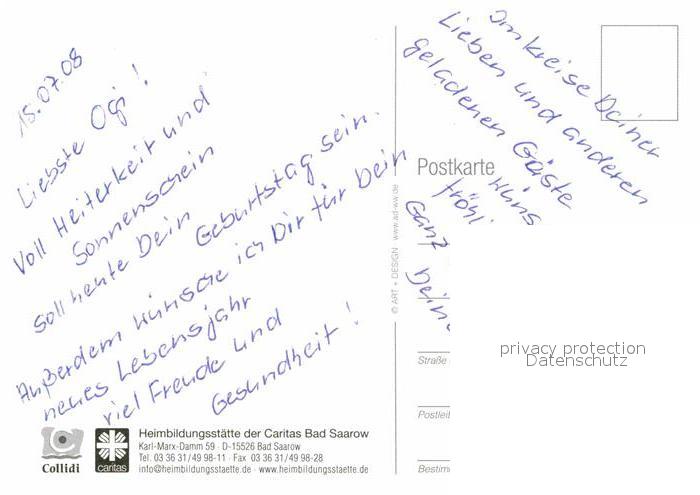 15.07.08
Liebste Ogi!
Voll Heiterkeit und
Sonnenschein
soll heute Dein
Geburtstag sein.
Außerdem wünsche ich Dir für Dein
neues Lebensjahr
viel Freude und
Gesundheit!
Im Kreise Deiner
Lieben und anderen
geladenen Gäste
wüns
fröhl
Ganz
Deine
Postkarte
© ART + DESIGN www.ad-ww.de
Straße
Postleit
Bestim
privacy protection
Datenschutz
Collidi
caritas
Heimbildungsstätte der Caritas Bad Saarow
Karl-Marx-Damm 59 · D-15526 Bad Saarow
Tel. 03 36 31/49 98-11 · Fax 03 36 31/49 98-28
info@heimbildungsstaette.de · www.heimbildungsstaette.de